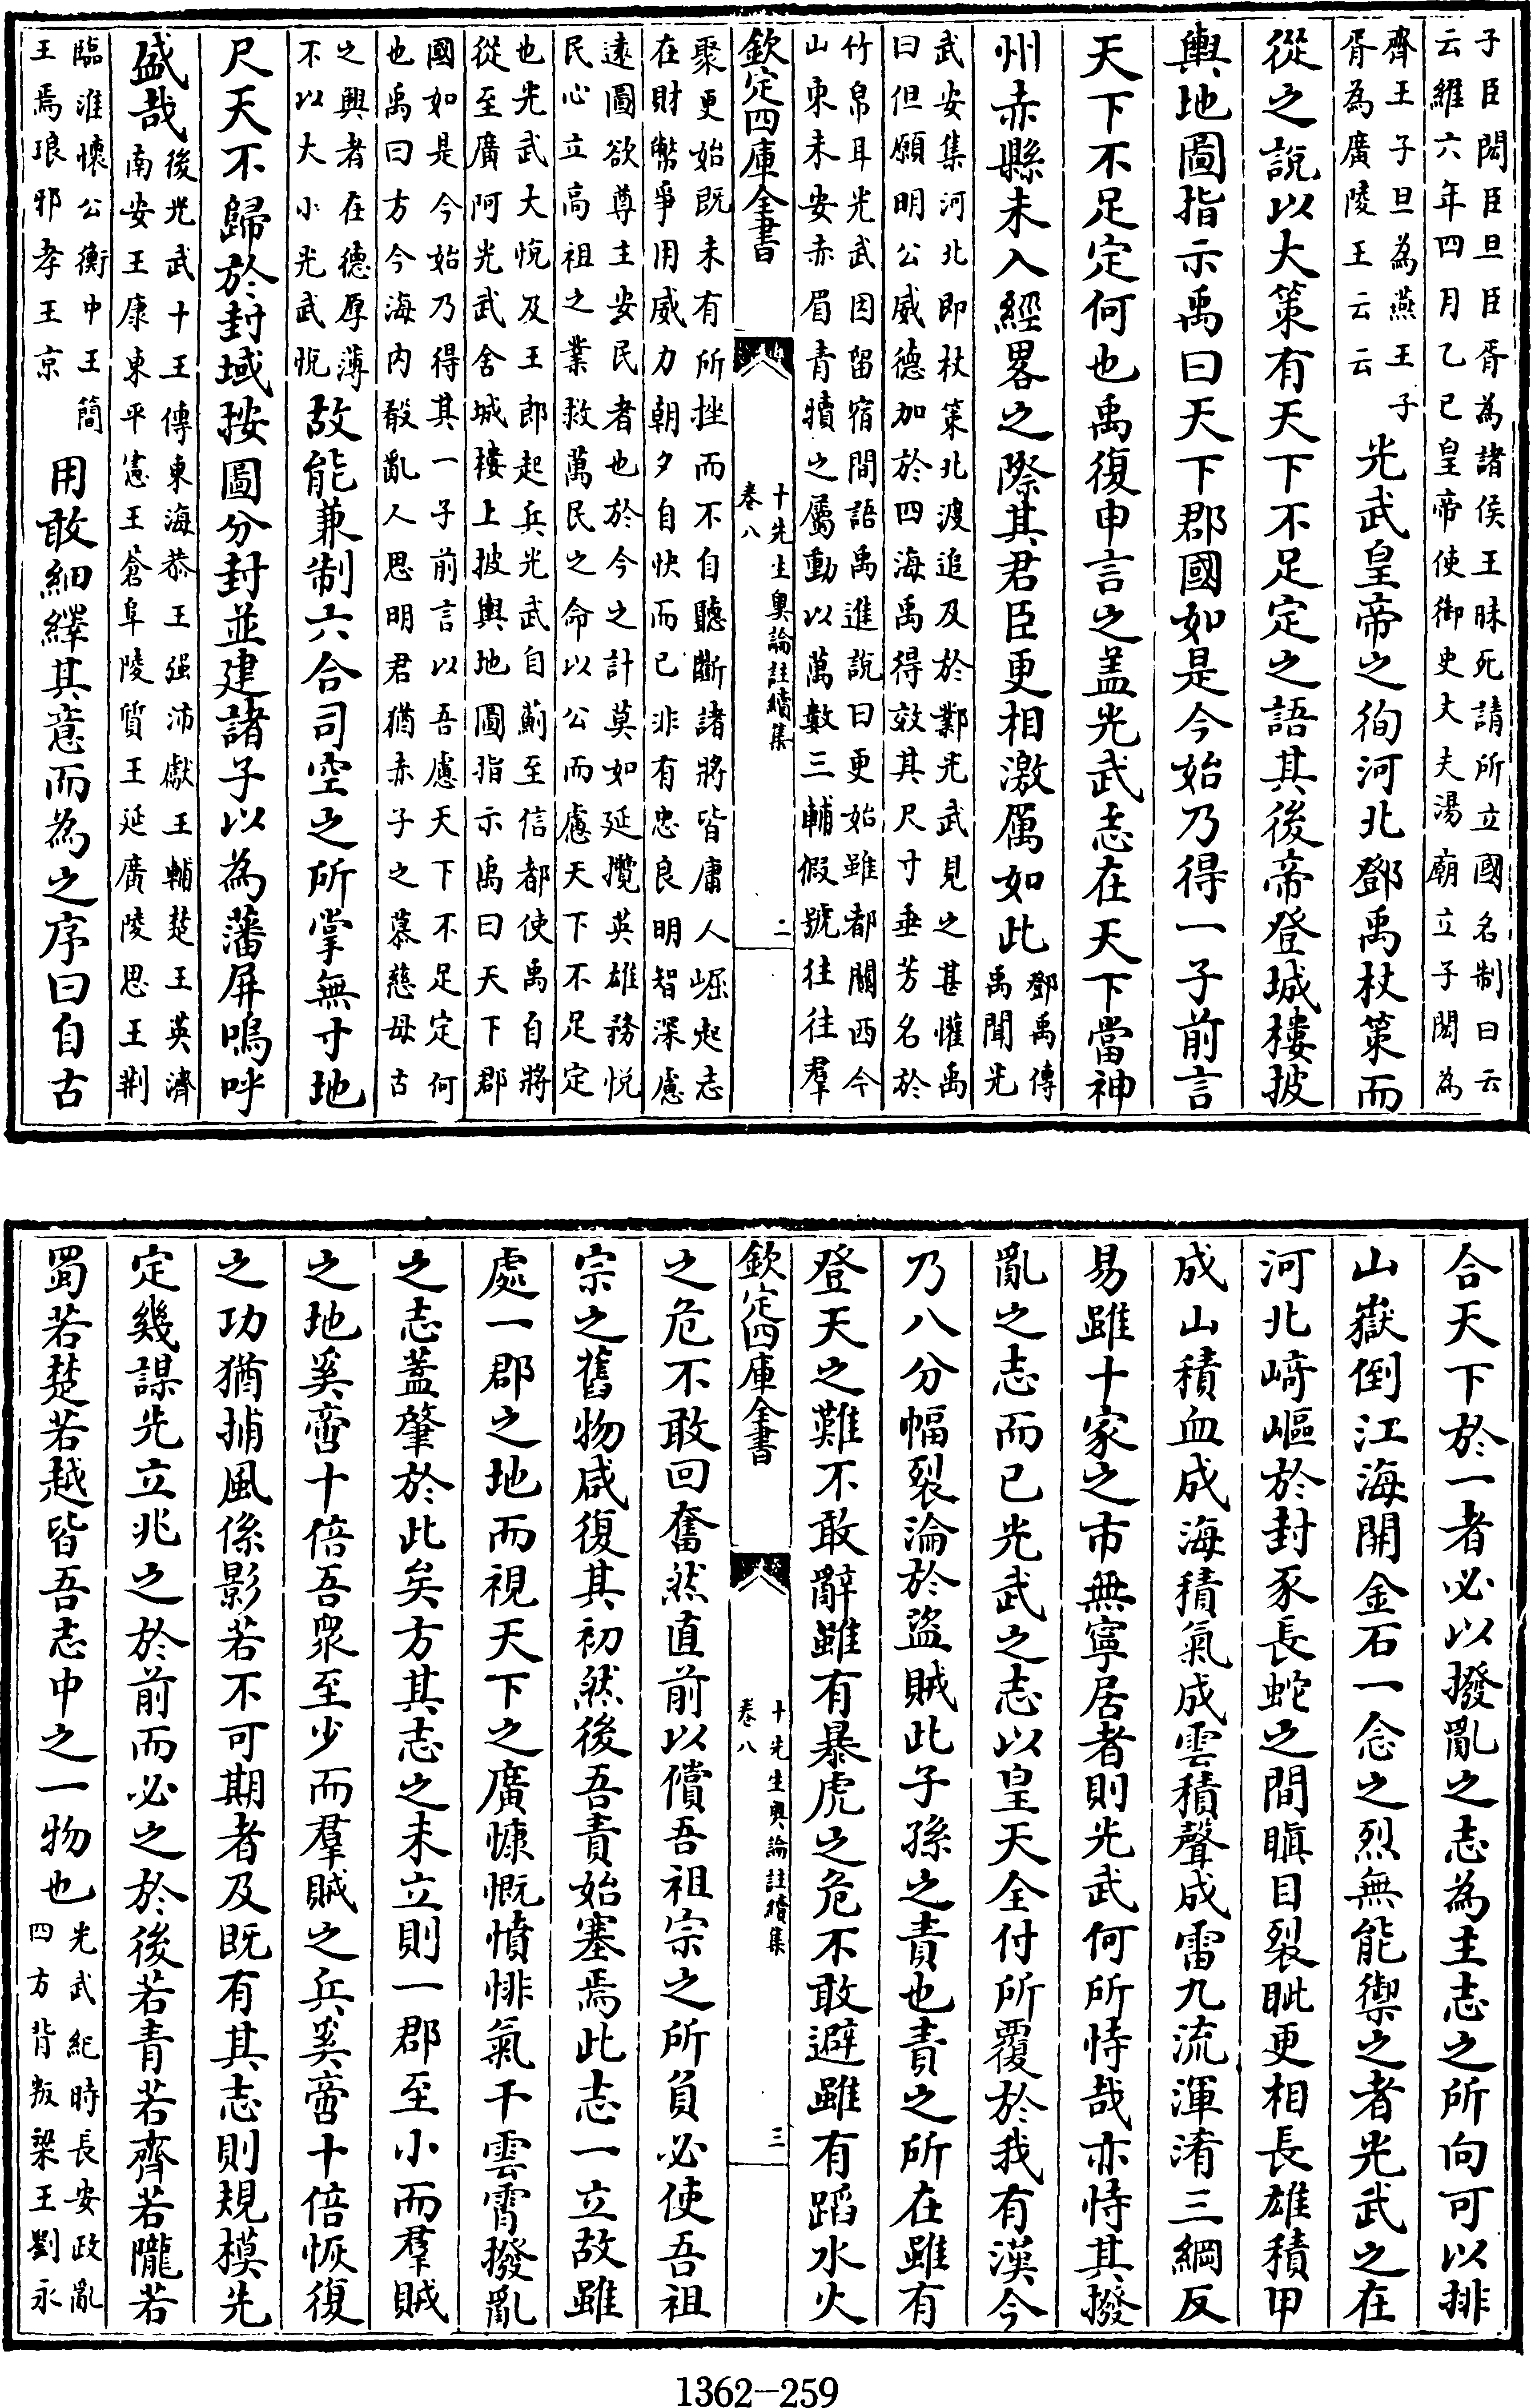 子臣閎臣旦臣胥為諸侯王昧死請所立國名制曰云
云維六年四月乙巳皇帝使御史大夫湯廟立子閎為
齊王子旦為燕王子
胥為廣陵王云云
光武皇帝之徇河北鄧禹杖策而
從之說以大策有天下不足定之語其後帝登城樓披
輿地圖指示禹曰天下郡國如是今始乃得一子前言
天下不足定何也禹復申言之盖光武志在天下當神
州赤縣未入經畧之際其君臣更相激厲如此
鄧禹傳
禹聞光
武安集河北即杖策北渡追及於鄴光武見之甚懽禹
曰但願明公威德加於四海禹得效其尺寸垂芳名於
竹帛耳光武因留宿間語禹進說曰更始雖都關西今
山東未安赤眉青犢之屬動以萬數三輔假號往往羣
欽定四庫全書
十先生奧論註續集
卷八
二
聚更始既未有所挫而不自聽斷諸將皆庸人崛起志
在財幣爭用威力朝夕自快而已非有忠良明智深慮
遠圖欲尊主安民者也於今之計莫如延攬英雄務悅
民心立高祖之業救萬民之命以公而慮天下不足定
也光武大悅及王郎起兵光武自薊至信都使禹自將
從至廣阿光武舍城樓上披輿地圖指示禹曰天下郡
國如是今始乃得其一子前言以吾慮天下不足定何
也禹曰方今海內殽亂人思明君猶赤子之慕慈母古
之興者在德厚薄
不以大小光武悅
故能兼制六合司空之所掌無寸地
尺天不歸於封域按圖分封並建諸子以為藩屏嗚呼
盛哉
後光武十王傳東海恭王强沛獻王輔楚王英濟
南安王康東平憲王蒼阜陵質王延廣陵思王荆
臨淮懷公衡中王
王焉琅邪孝王京
簡
用敢細繹其意而為之序曰自古
合天下於一者必以撥亂之志為主志之所向可以排
山嶽倒江海開金石一念之烈無能禦之者光武之在
河北崎嶇於封豕長蛇之間瞋目裂眦更相長雄積甲
成山積血成海積氣成雲積聲成雷九流渾淆三綱反
易雖十家之市無寧居者則光武何所恃哉亦恃其撥
亂之志而已光武之志以皇天全付所覆於我有漢今
乃八分幅裂淪於盜賊此子孫之責也責之所在雖有
登天之難不敢辭雖有暴虎之危不敢避雖有蹈水火
欽定四庫全書
十先生奧論註續集
卷八
三
之危不敢回奮然直前以償吾祖宗之所負必使吾祖
宗之舊物咸復其初然後吾責始塞焉此志一立故雖
處一郡之地而視天下之廣慷慨憤悱氣干雲霄撥亂
之志蓋肇於此矣方其志之未立則一郡至小而羣賊
之地奚啻十倍吾眾至少而羣賊之兵奚啻十倍恢復
之功猶捕風係影若不可期者及既有其志則規模先
定幾謀先立兆之於前而必之於後若青若齊若隴若
蜀若楚若越皆吾志中之一物也
光武紀時長安政亂
四方背叛梁王劉永
1362-259